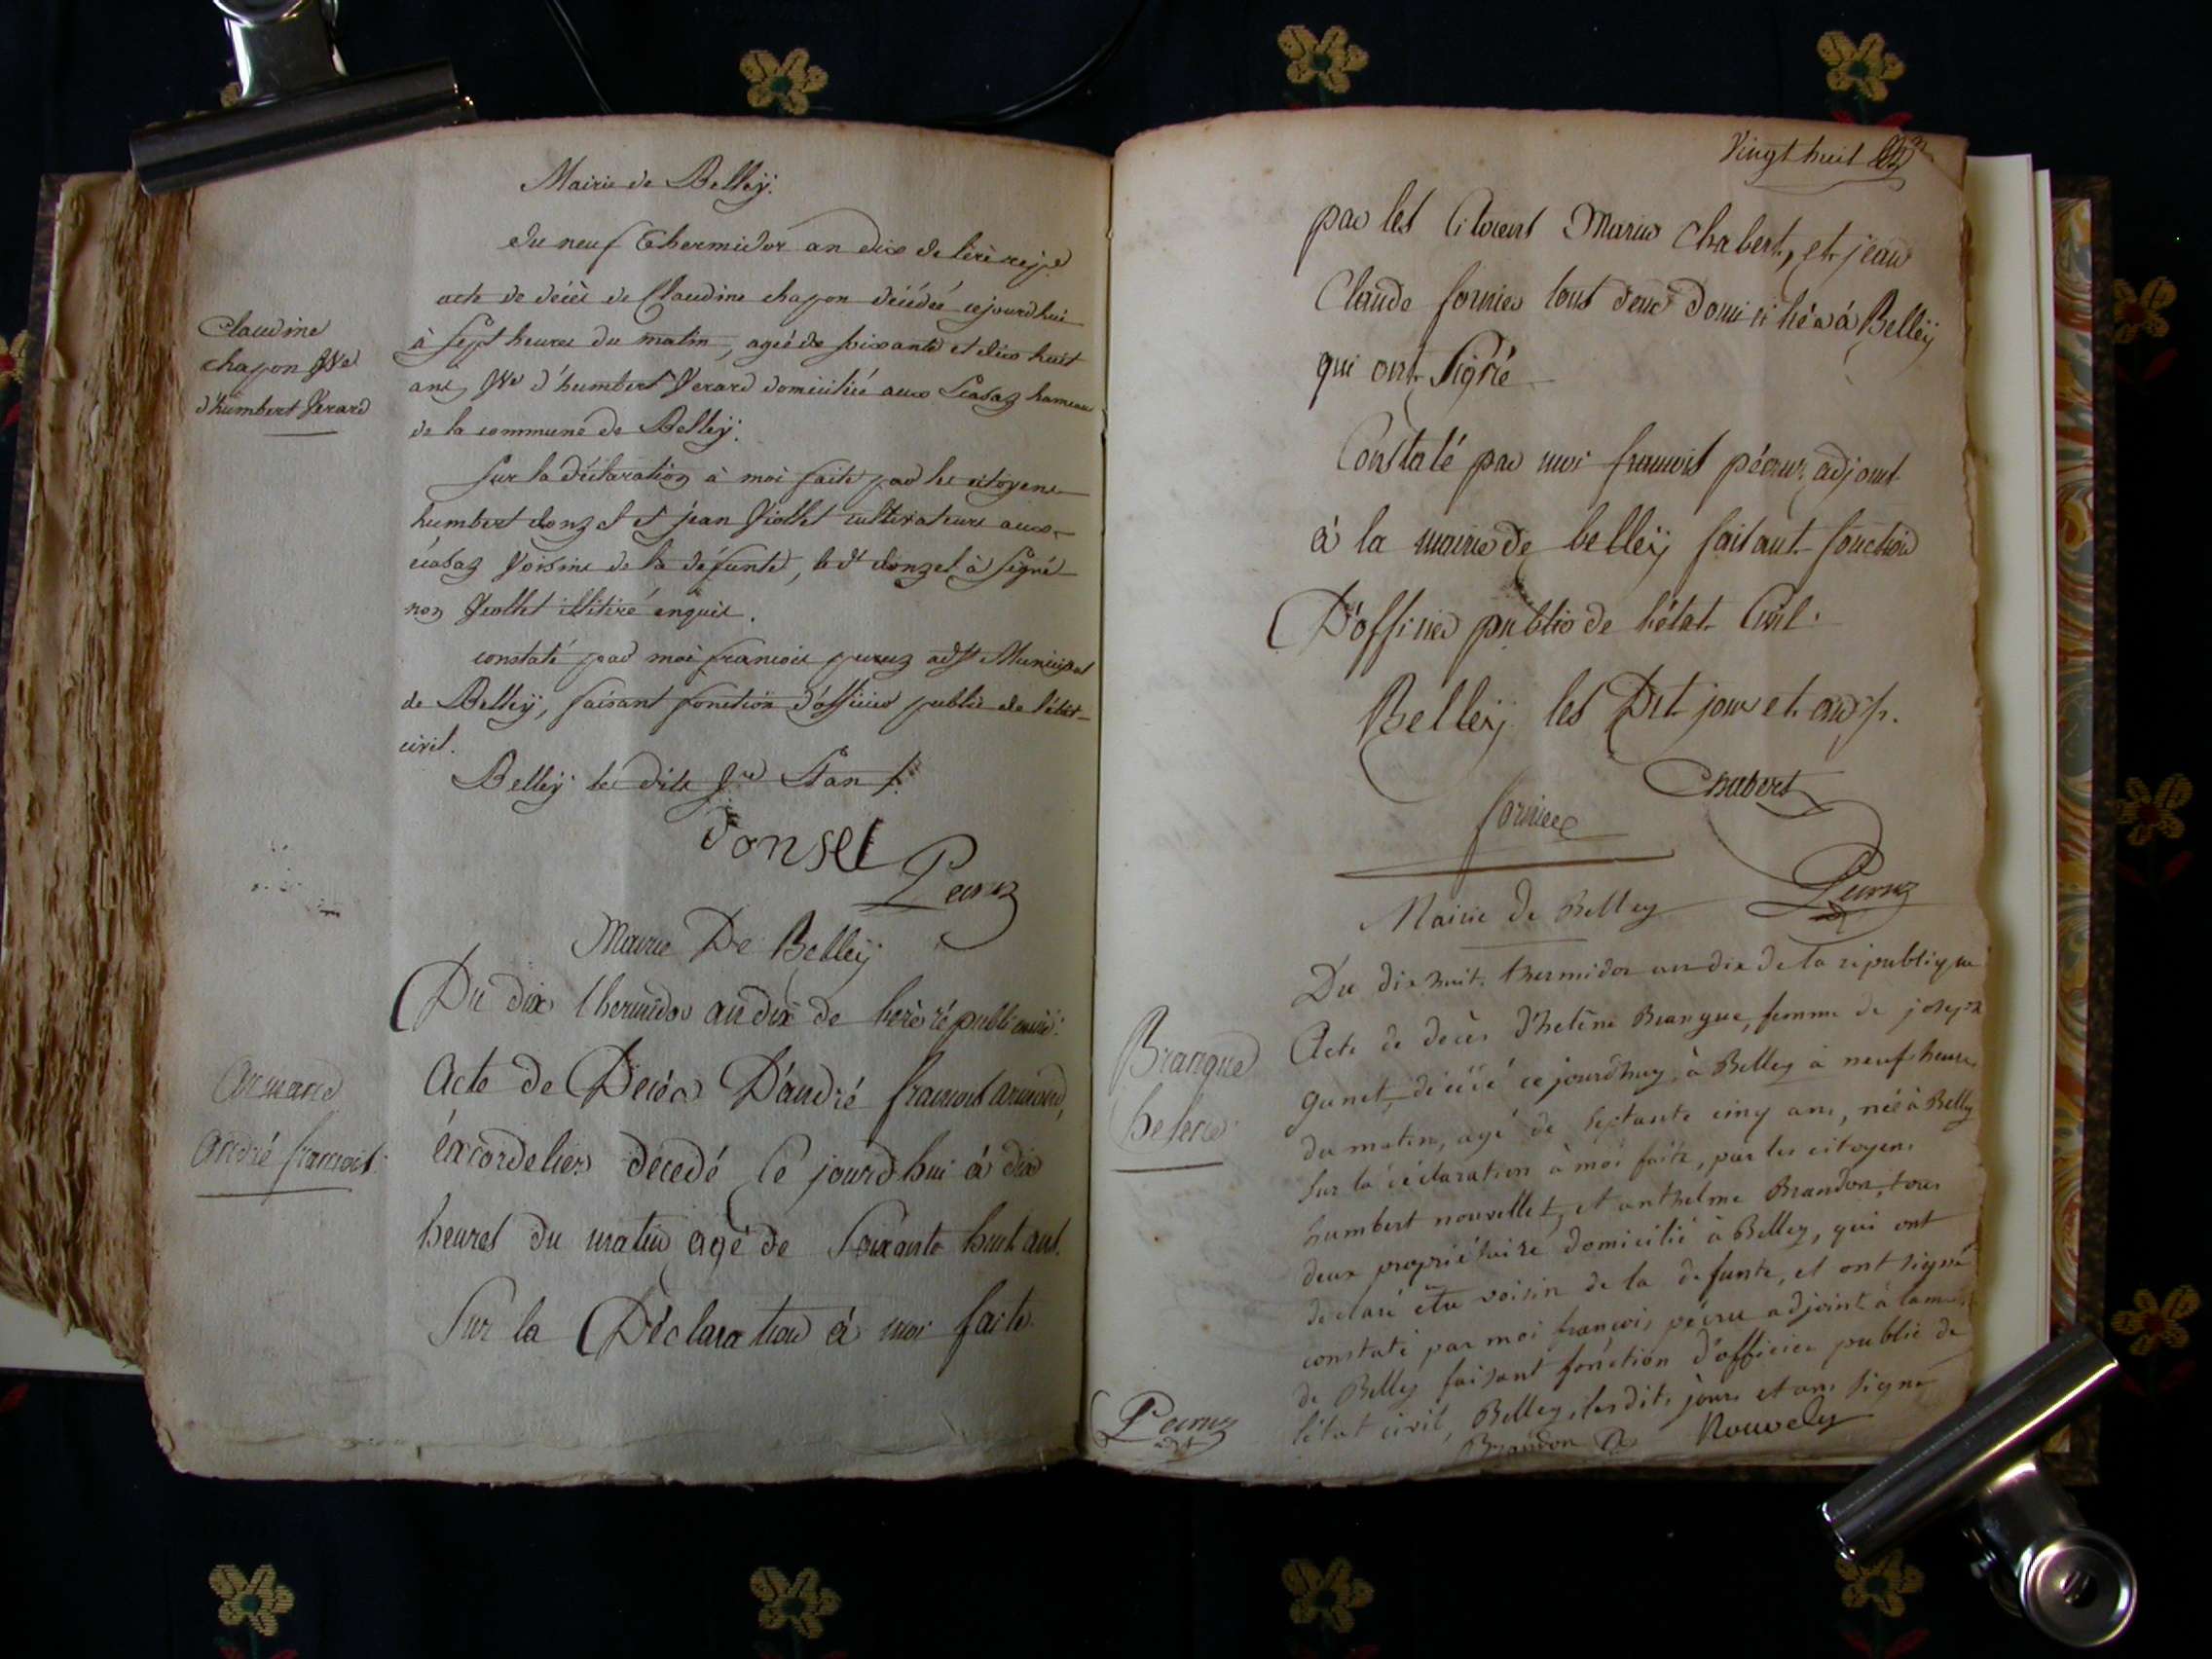 Mairie de Belleÿ.
du neuf Thermidor an dix de l'ère
acte de décès de Claudine chapon décédée cejourdhui
à sept heures du matin, agée de soixante et dix huit
ans, Vve d'humbert Verard domiciliée aux hameau
de la commune de Belleÿ.
Claudine
chapon Vve
d'humbert Verard
Sur la déclaration à moi faite par les citoyens
humbert donzel et jean Viollet cultivateurs aux
voisins de la défunte, le dt donzel à signé
non Viollet illitiré enquis.
constaté par moi francois adjt Municipal
de Belleÿ, faisant fonction d'officier public de l'état
civil.
Belleÿ les dits Jr et an
donsel
Mairie De Belleÿ
Du dix thermidor an dix de l'ère républicaine.
Acte de Decès D'andré francois armand,
éxcordelier decedé ce jourdhui à dix
heures du matin agé de soixante huit ans.
Armand
André francois.
Sur la Déclaration à moi faite
Vingt huit
par les Citoiens Marin Chabert, et jean
Claude fornier tous deux domiciliés à Belleÿ
qui ont signé
Constaté par moi francois pécruz, adjoint
à la mairie de belleÿ faisant fonction
D'officier public de l'état Civil.
Belleÿ les Dit jour et an
Chabert
fornier
Mairie de Belley
Du dix huit thermidor an dix de la république
Acte de decès d'helène Brangue, femme de joseph
décédé cejourdhuy à Belley à neuf heures
du matin, agé de septante cinq ans, née à Belley
Brangue
helene
Sur la déclaration à moi faite, par les citoyens
humbert nouvellet, et anthelme Brandon, tous
deux propriétaire domicilié à Belley, qui ont
declaré être voisin de la defunte, et ont signé
constaté par moi françois pécru adjoint à la
de Belley faisant fonction d'officier public de
l'état civil, Belley, lesdits jours et an signé
Brandon Nouvely